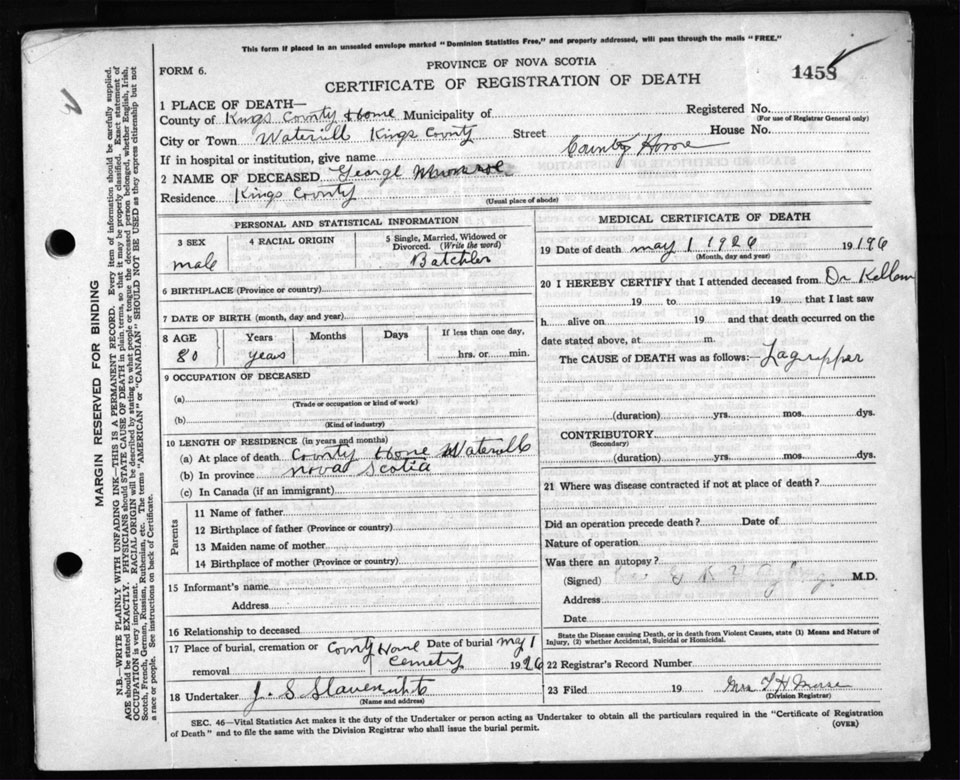 This form if placed in an unsealed envelope marked "Dominion Statistics Free," and properly addressed, will pass through the mails "FREE."
PROVINCE OF NOVA SCOTIA
FORM 6.
CERTIFICATE OF REGISTRATION OF DEATH
1458
1 PLACE OF DEATH—
County of Kings County Home Municipality of
Registered No.
(For use of Registrar General only)
City or Town Waterville Kings County Street
House No.
If in hospital or institution, give name County Home
2 NAME OF DECEASED George
Residence Kings County
(Usual place of abode)
PERSONAL AND STATISTICAL INFORMATION
3 SEX
male
4 RACIAL ORIGIN
5 Single, Married, Widowed or Divorced. (Write the word)
Batchler
6 BIRTHPLACE (Province or county)
7 DATE OF BIRTH (month, day and year)
8 AGE Years Months Days If less than one day,
80 years hrs. or min.
9 OCCUPATION OF DECEASED
(a)
(Trade or occupation or kind of work)
(b)
(Kind of industry)
10 LENGTH OF RESIDENCE (in years and months)
(a) At place of death County Home
(b) In province Nova Scotia
(c) In Canada (if an immigrant)
Parents
11 Name of father
12 Birthplace of father (Province or country)
13 Maiden name of mother
14 Birthplace of mother (Province or country)
15 Informant's name
Address
16 Relationship to deceased
17 Place of burial, cremation or County Home Date of burial may 1
removal Cemetry 1926
18 Undertaker J. S
(Name and address)
MEDICAL CERTIFICATE OF DEATH
19 Date of death may 1 1926 19
(Month, day and year)
20 I HEREBY CERTIFY that I attended deceased from Dr
19 to 19 that I last saw
h alive on 19 and that death occurred on
date stated above, at m.
The CAUSE of DEATH was as follows:— Lagripper
(duration) yrs. mos. dys.
CONTRIBUTORY
(Secondary)
(duration) yrs. mos. dys.
21 Where was disease contracted if not at place of death?
Did an operation precede death? Date of
Nature of operation
Was there an autopsy?
(Signed) M.D.
Address
Date
State the Disease causing Death, or in death from Violent Causes, state (1) Means and Nature of Injury, (2) whether Accidental, Suicidal or Homicidal.
22 Registrar's Record Number
23 Filed 19 Mrs
(Division Registrar)
SEC. 46—Vital Statistics Act makes it the duty of the Undertaker or person acting as Undertaker to obtain all the particulars required in the "Certificate of Registration
of Death" and to file the same with the Division Registrar who shall issue the burial permit.
(OVER)
MARGIN RESERVED FOR BINDING
N.B.—WRITE PLAINLY WITH UNFADING INK—THIS IS A PERMANENT RECORD. Every item of information should be carefully supplied.
AGE should be stated EXACTLY. PHYSICIANS should STATE CAUSE OF DEATH in plain terms, so that it may be properly classified. Exact statement of
OCCUPATION is very important. RACIAL ORIGIN will be described by stating to what people or tongue the deceased person belonged, whether English, Irish,
Scotch, French, German, Russian, Ruthenian, etc. The terms "AMERICAN" or "CANADIAN" SHOULD NOT BE USED as they express citizenship but not
a race or people. See instructions on back of Certificate.